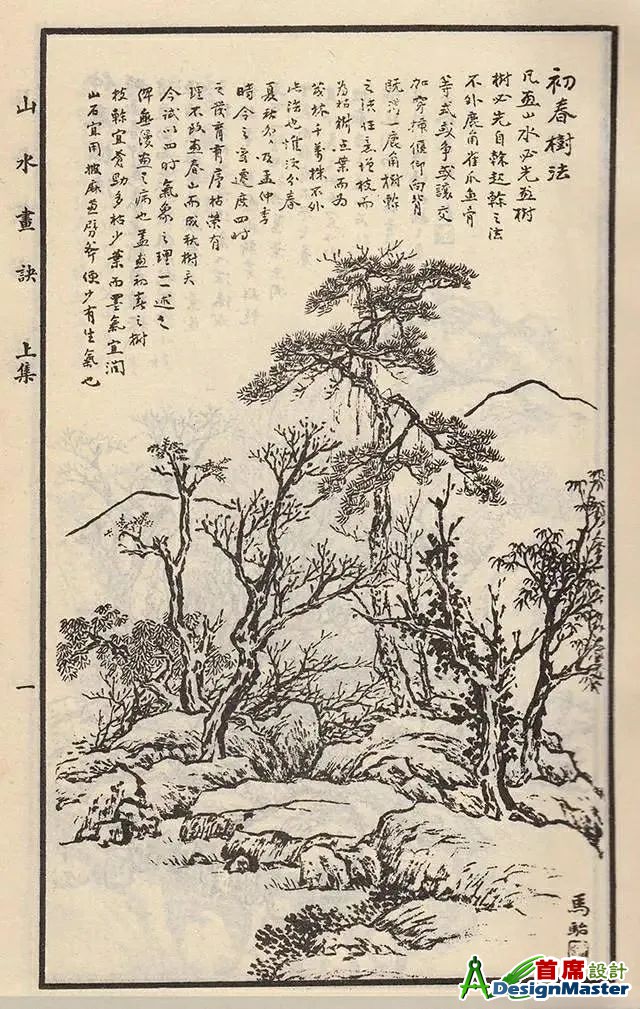 初春樹法
凡画山水必先画樹
樹必先自榦起榦之法
不外鹿角雀爪魚骨
等式或爭或讓交
加穿插偃仰向背
既得一鹿角樹榦
之法任意增枝而
为枯樹点葉而为
茂林千萬株不外
此法也惟須分春
夏秋冬及孟仲季
時令之寒暖度四时
之發育有序枯荣有
理不致画春山而成秋樹矣
今試以四时氣象之理一一述之
俾無漫画之病也盖画初春之樹
枝榦宜蒼勁多枯少葉而墨氣宜润
山石宜用披麻画劈斧便少有生氣也
山水畫訣 上集
一
馬駘
首席設計
DesignMaster